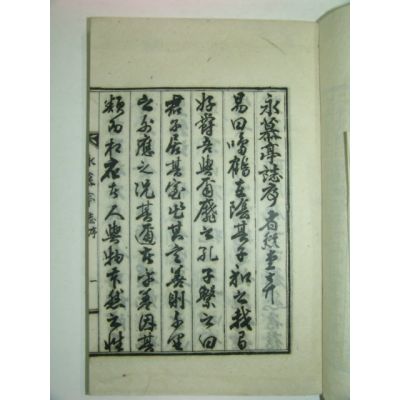 永慕亭誌序
易曰鳴鶴在陰其子和之我有
好爵吾與爾靡之孔子繫之曰
君子居其室出其言善則千里
之外應之況其邇者乎因其
類而相人與物然之性
永慕亭誌序 一